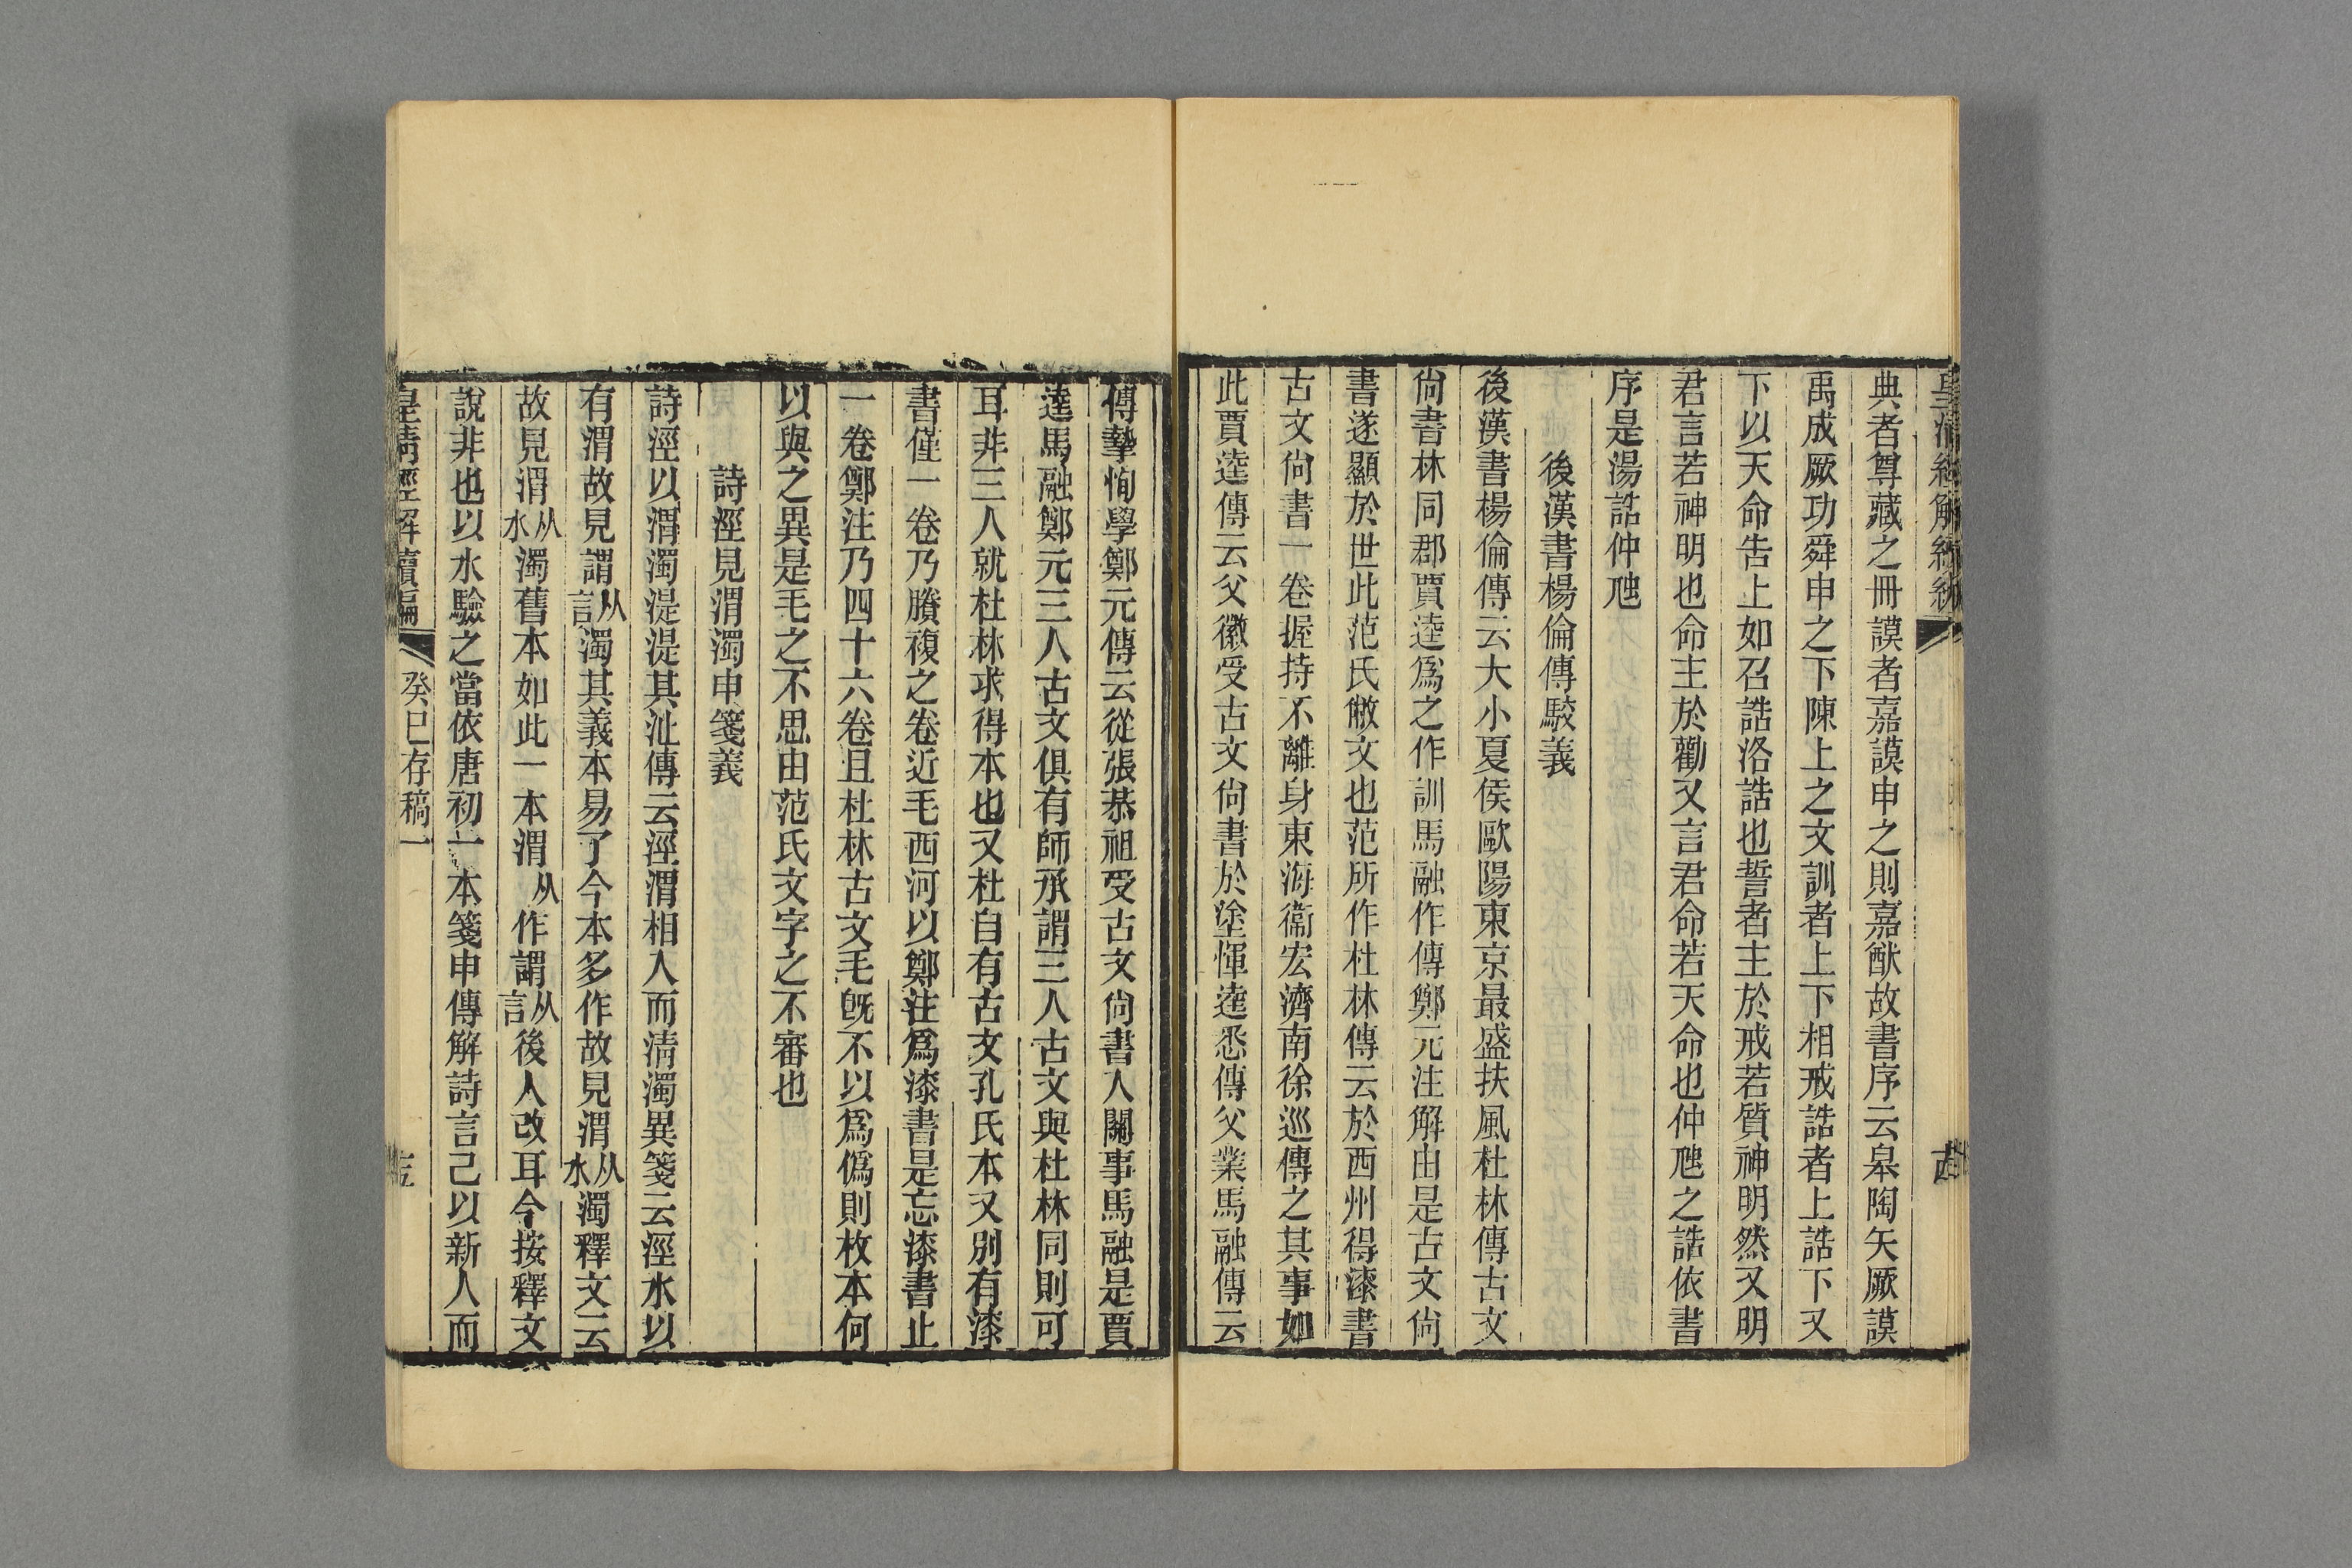 皇清經解續編
古
典者尊藏之冊謨者嘉謨申之則嘉猷故書序云皋陶矢厥謨
禹成厥功舜申之下陳上之文訓者上下相戒誥者上誥下又
下以天命告上如召誥洛誥也誓者主於戒若質神明然又明
君言若神明也命主於勸又言君命若天命也仲虺之誥依書
序是湯誥仲虺
後漢書楊倫傳駮義
後漢書楊倫傳云大小夏侯歐陽東京最盛扶風杜林傳古文
尙書林同郡賈逵爲之作訓馬融作傳鄭元注解由是古文尙
書遂顯於世此范氏敝文也范所作杜林傳云於西州得漆書
古文尙書一卷握持不離身東海衞宏濟南徐巡傳之其事如
此賈逵傳云父徽受古文尙書於塗惲逵悉傳父業馬融傳云
傳摯恂學鄭元傳云從張恭祖受古文尙書入關事馬融是賈
逵馬融鄭元三人古文俱有師承謂三人古文與杜林同則可
耳非三人就杜林求得本也又杜自有古文孔氏本又別有漆
書僅一卷乃賸複之卷近毛西河以鄭注爲漆書是忘漆書止
一卷鄭注乃四十六卷且杜林古文毛旣不以爲僞則枚本何
以與之異是毛之不思由范氏文字之不審也
詩涇見渭濁申箋義
詩涇以渭濁湜湜其沚傳云涇渭相入而淸濁異箋云涇水以
有渭故見謂从言濁其義本易了今本多作故見渭从水濁釋文云
故見渭从水濁舊本如此一本渭从作謂从言後人改耳今按釋文
說非也以水驗之當依唐初一本箋申傳解詩言己以新人而
皇清經解續編
癸巳存稿一